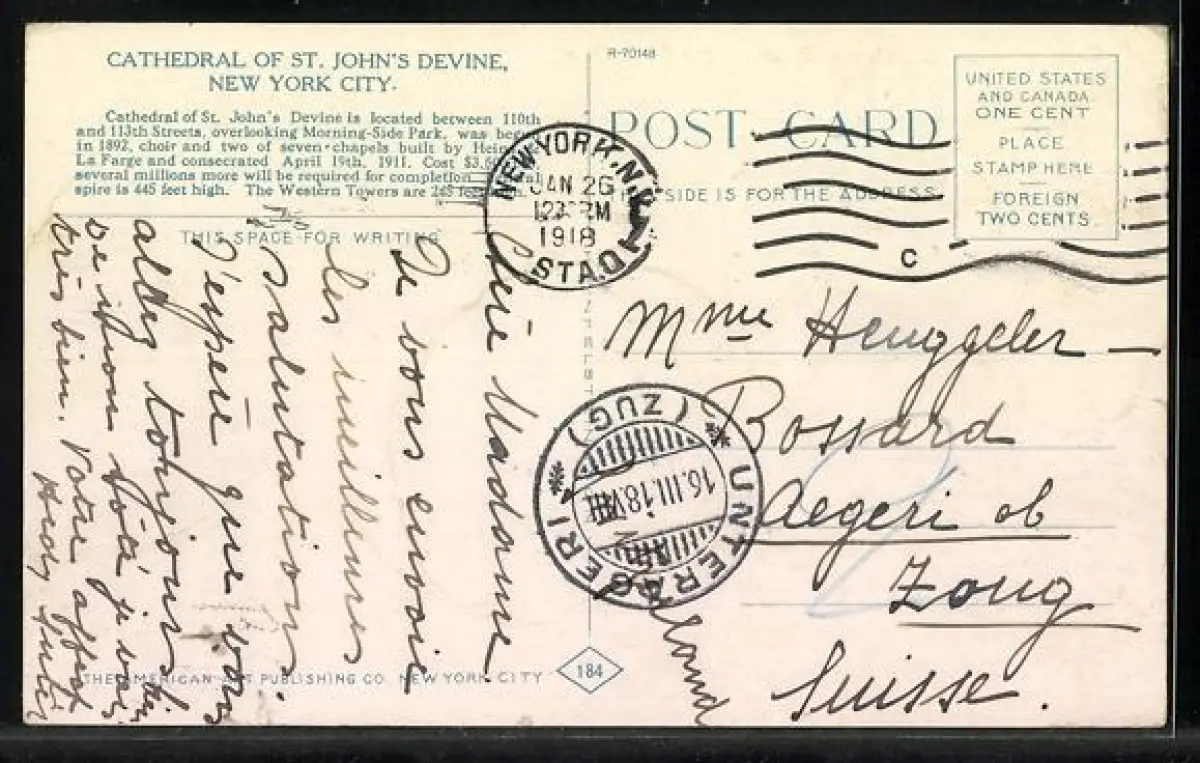 CATHEDRAL OF ST. JOHN'S DEVINE,
NEW YORK CITY.
Cathedral of St. John's Devine is located between 110th
and 113th Streets, overlooking Morning-Side Park, was
in 1892, choir and two of seven chapels built by
La Farge and consecrated April 19th, 1911. Cost
several millions more will be required for completion
spire is 445 feet high. The Western Towers are
THIS SPACE FOR WRITING
Chère Madame
Je vous envoie
les meilleures
salutations.
J'espère que vous
allez toujours bien
très bien. Votre
THE AMERICAN ART PUBLISHING CO. NEW YORK CITY
R-70148
POST CARD
SIDE IS FOR THE ADDRESS
UNITED STATES
AND CANADA
ONE CENT
PLACE
STAMP HERE
FOREIGN
TWO CENTS
NEW YORK, N.Y.
JAN 26
1918
STA.
C
Mme Heuggeler-
Bossard
Aegeri ob
Zoug
Suisse.
UNTERÄGERI
(ZUG)
16.III.18.VIII
184